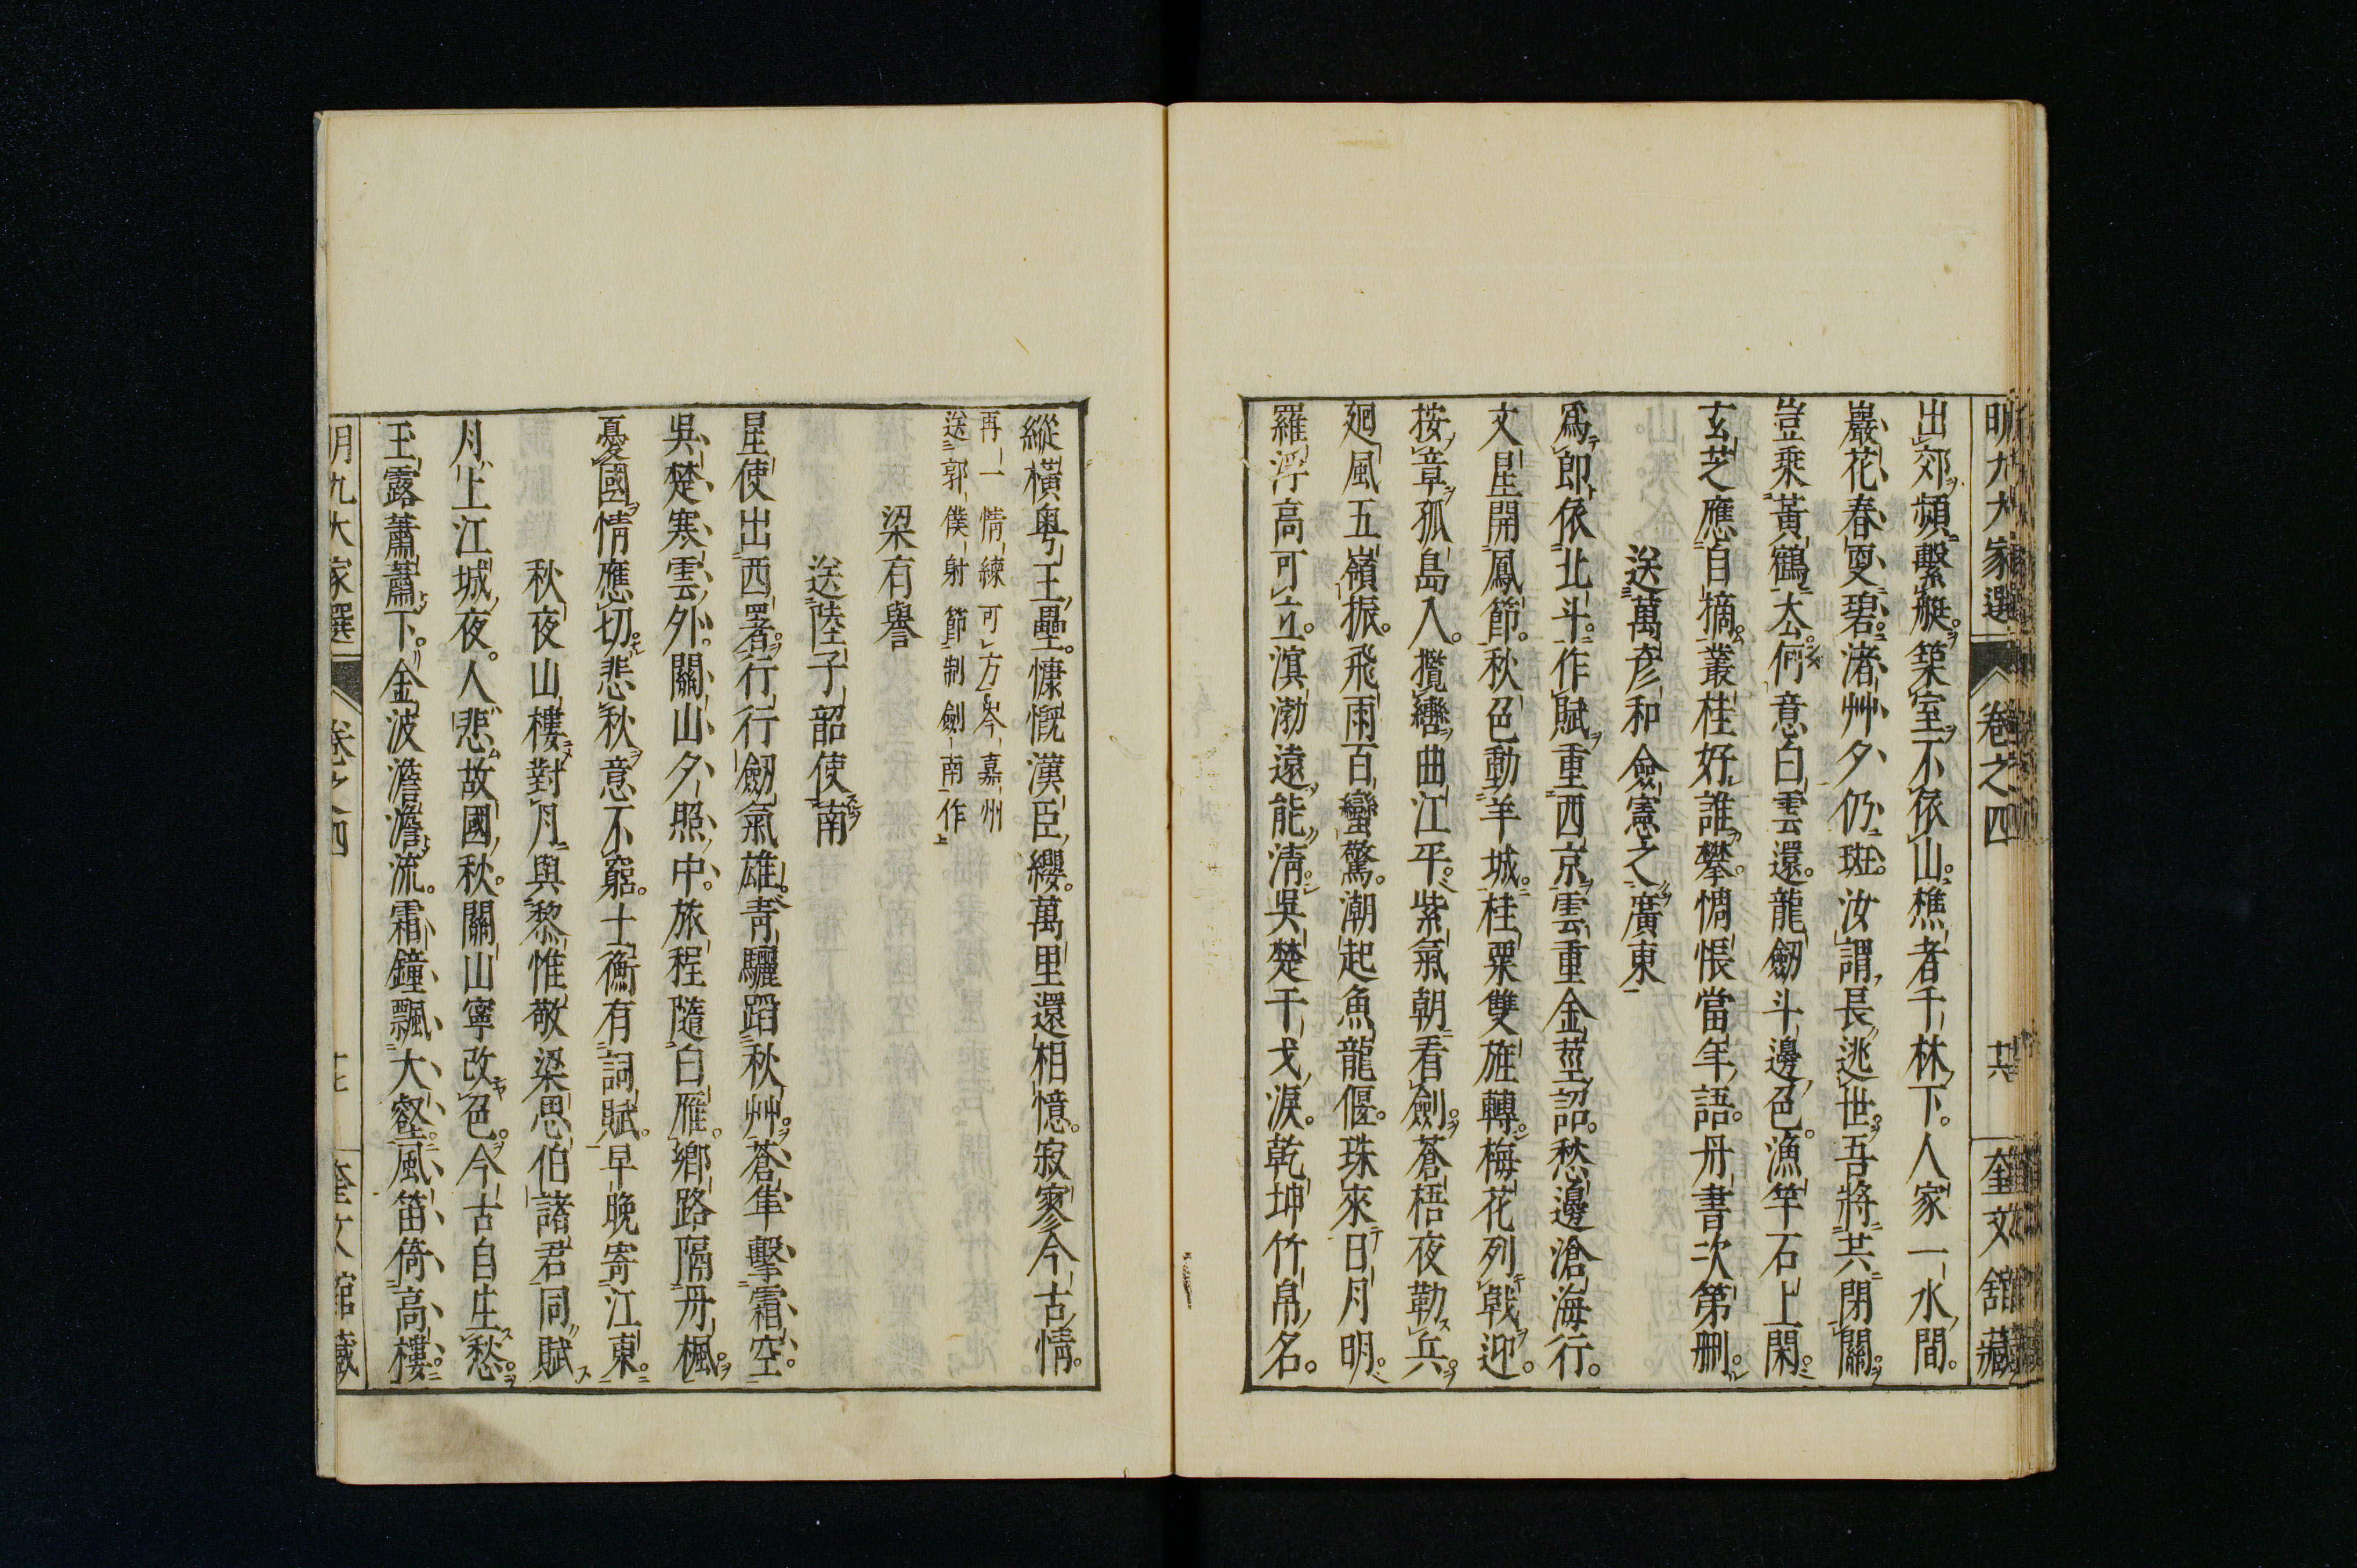 明九大家選 卷之四 十六 奎文舘藏
出郊頻繫艇。築室不依山。樵者千林下。人家一水間。
巖花春更碧。渚艸夕仍斑。汝謂長逃世。吾將共閉關。
豈乘黃鶴去。何意白雲還。龍劒斗邊色。漁竿石上閑。
玄芝應自摘。叢桂好誰攀。惆悵當年語。丹書次第刪。
送萬彥和僉憲之廣東
爲郎依北斗。作賦重西京。雲重金莖詔。愁邊滄海行。
文星開鳳節。秋色動羊城。桂粟雙旌轉。梅花列戟迎。
按章孤島入。攬轡曲江平。紫氣朝看劍。蒼梧夜勒兵。
廻風五嶺振。飛雨百蠻驚。潮起魚龍偃。珠來日月明。
羅浮高可立。溟渤遠能淸。吳楚干戈淚。乾坤竹帛名。
縱橫粤王壘。慷慨漢臣纓。萬里還相憶。寂寥今古情。
再一情練可方岑嘉州
送郭僕射節制劍南作
梁有譽
送陸子韶使南
星使出西署。行行劒氣雄。靑驪蹈秋艸。蒼隼擊霜空。
吳楚寒雲外。關山夕照中。旅程隨白雁。鄉路隔丹楓。
憂國情應切。悲秋意不窮。士衡有詞賦。早晚寄江東。
秋夜山樓對月與黎惟敬梁思伯諸君同賦
月上江城夜。人悲故國秋。關山寧改色。今古自生愁。
玉露蕭蕭下。金波澹澹流。霜鐘飄大壑。風笛倚高樓。
明九大家選 卷之四 十七 奎文舘藏